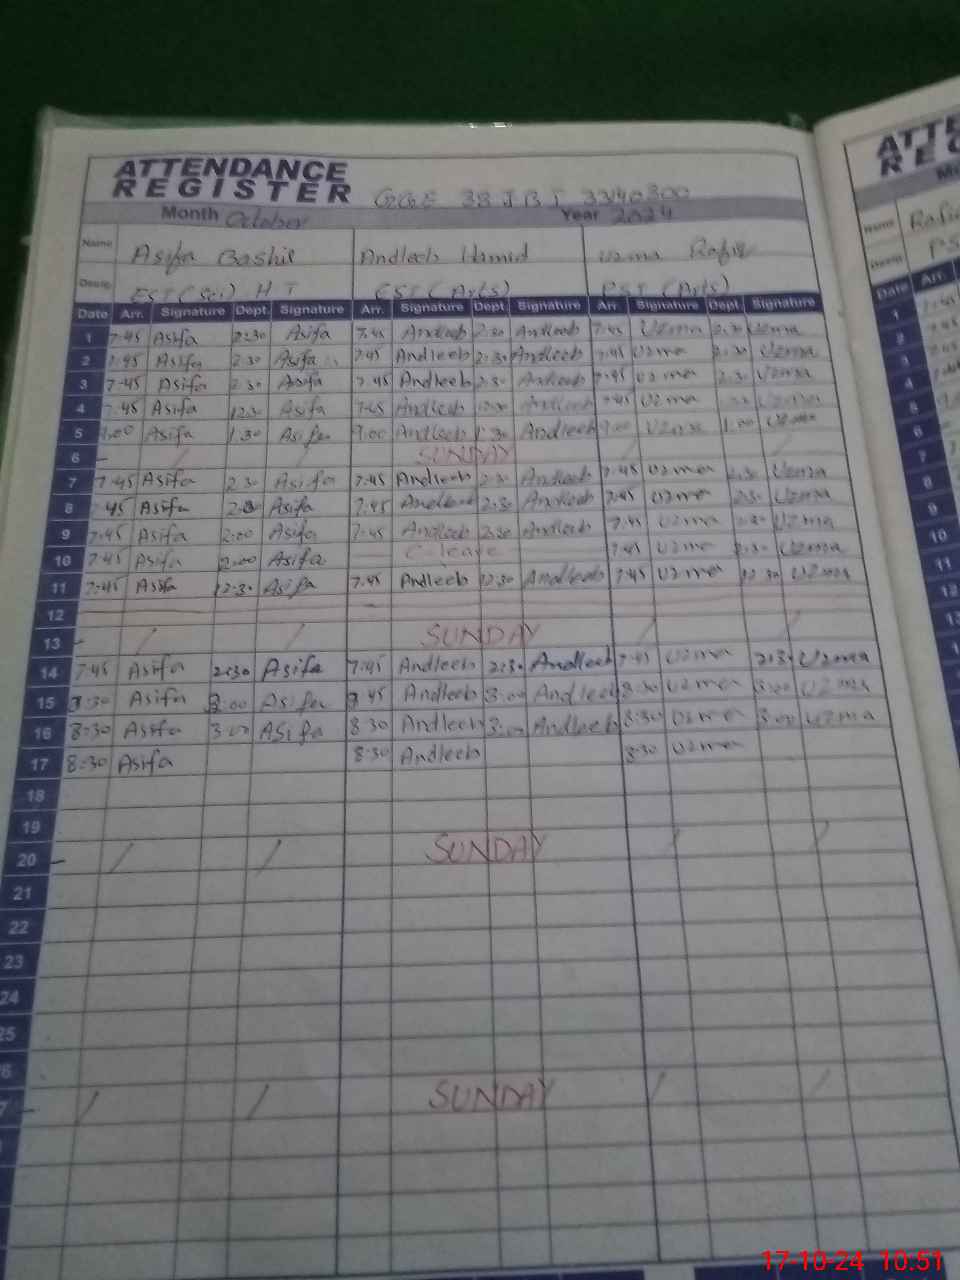 ATTENDANCE
REGISTER GGE 38 JBI 33140300
Month October Year 2024
Name Asifa Bashir Andleeb Hamid Uzma Rafiq
Desig EST (Sci) HT EST (Arts) PST (Arts)
Date Arr. Signature Dept. Signature Arr. Signature Dept Signature Arr Signature Dept. Signature
1 7:45 Asifa 2:30 Asifa 7:45 Andleeb 2:30 Andleeb 7:45 Uzma 2:30 Uzma
2 7:45 Asifa 2:30 Asifa 7:45 Andleeb 2:30 Andleeb 7:45 Uzma 2:30 Uzma
3 7:45 Asifa 2:30 Asifa 7:45 Andleeb 2:30 Andleeb 7:45 Uzma 2:30 Uzma
4 7:45 Asifa 12:30 Asifa 7:45 Andleeb 12:30 Andleeb 7:45 Uzma Uzma
5 9:00 Asifa 1:30 Asifa 9:00 Andleeb 1:30 Andleeb 9:00 Uzma 1:00 Uzma
6 SUNDAY
7 7:45 Asifa 2:30 Asifa 7:45 Andleeb 2:30 Andleeb 7:45 Uzma 2:30 Uzma
8 7:45 Asifa 2:30 Asifa 7:45 Andleeb 2:30 Andleeb 7:45 Uzma 2:30 Uzma
9 7:45 Asifa 2:00 Asifa 7:45 Andleeb 2:30 Andleeb 7:45 Uzma 2:30 Uzma
10 7:45 Asifa 2:00 Asifa C-leave 7:45 Uzma 2:30 Uzma
11 7:45 Asifa 12:30 Asifa 7:45 Andleeb 12:30 Andleeb 7:45 Uzma 12:30 Uzma
12
13 SUNDAY
14 7:45 Asifa 2:30 Asifa 7:45 Andleeb 2:30 Andleeb 7:45 Uzma 2:30 Uzma
15 8:30 Asifa 3:00 Asifa 45 Andleeb 3:00 Andleeb 8:30 Uzma 3:00 Uzma
16 8:30 Asifa 3:00 Asifa 8:30 Andleeb 3:00 Andleeb 8:30 Uzma 3:00 Uzma
17 8:30 Asifa 8:30 Andleeb 8:30 Uzma
18
19
20 SUNDAY
21
22
23
24
25
6
7 SUNDAY
ATTE
REG
Name Rafi
Desig PS
Date Arr.
1
2
3
4
5
6
7
8
9
10
11
12
13
17-10-24 10:51